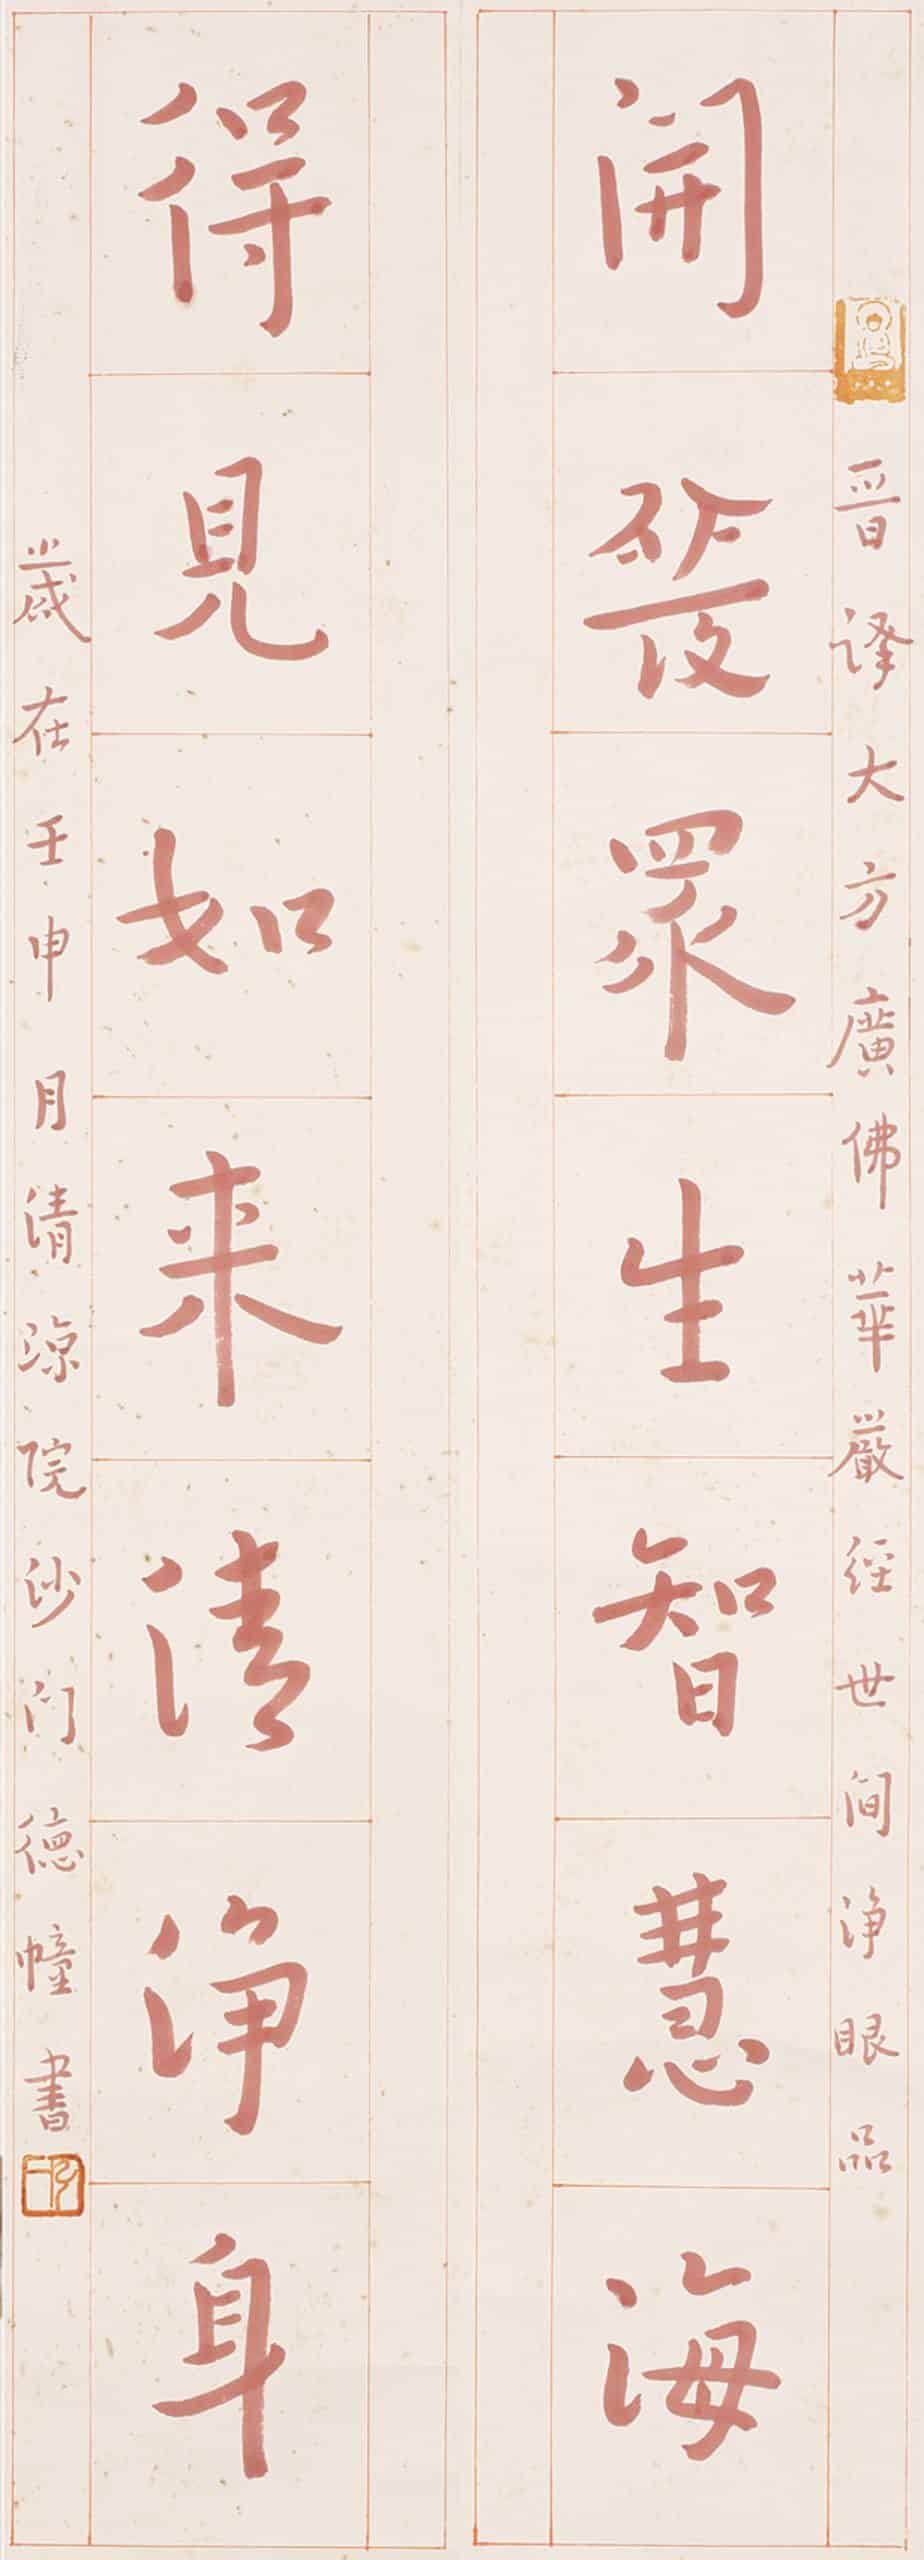 晉譯大方廣佛華嚴經世間淨眼品
開發眾生智慧海
得見如来清淨身
歲在壬申月清涼院沙門德幢書